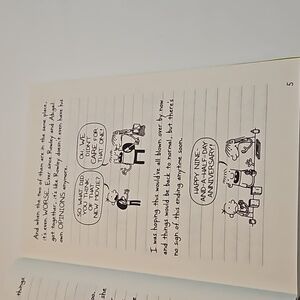 And when the two of them are in the same place,
it's even WORSE. Ever since Rowley and Abigail
got together, it's like Rowley doesn't even have his
own OPINIONS anymore.
SO WHAT DID
YOU THINK
OF THAT
NEW MOVIE?
OH, WE
DIDN'T
CARE FOR
THAT ONE!
I was hoping this would've all blown over by now
and things would be back to normal, but there's
no sign of this ending anytime soon.
HAPPY NINE-
AND-A-HALF-DAY
ANNIVERSARY!
5
things